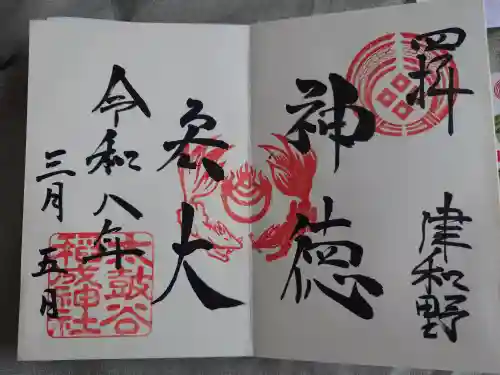 拝
津和野
神徳
大
令和八年
三月 五日
太皷谷
稲成神社